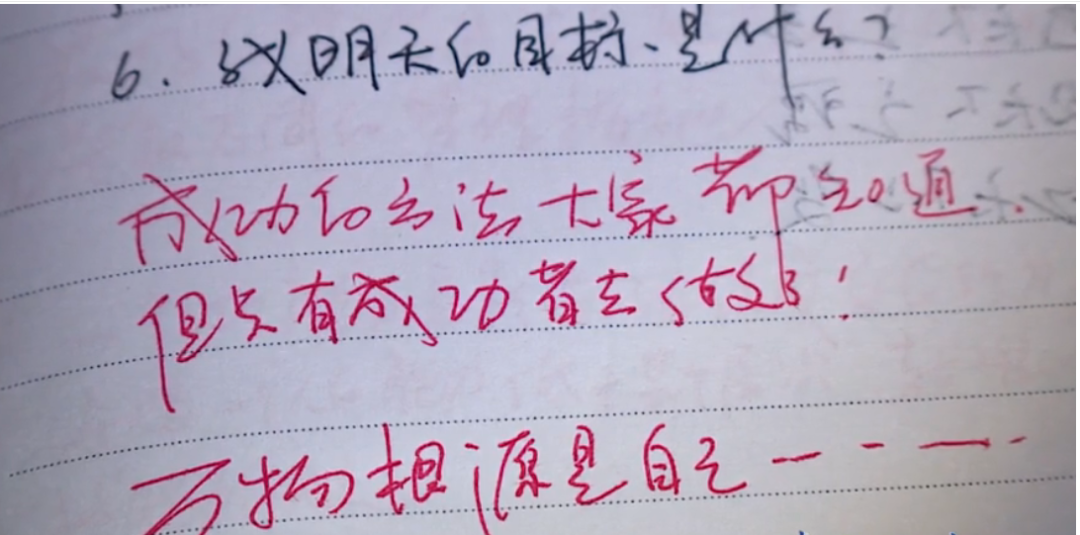 6. 我明天的目标、是什么?
成功的方法大家都知道、
但只有成功者去做了!
万物根源是自己－－－－